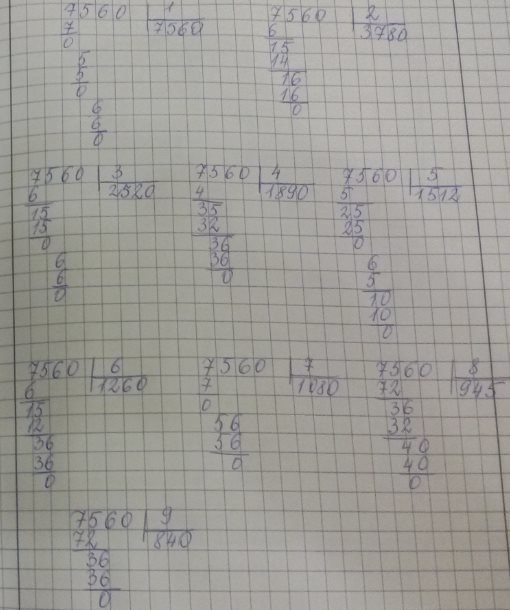 7560 1 7560 2
7 7560 6 3780
0 15
5 14
5 16
0 16
6 0
6
0
7560 3 7560 4 7560 5
6 2520 4 1890 5 1512
15 35 25
15 32 25
0 36 0
6 36 6
6 0 5
0 10
10
0
7560 6 7560 7 7560 8
6 1260 7 1080 72 945
15 0 36
12 56 32
36 56 40
36 0 40
0 0
7560 9
72 840
36
36
0